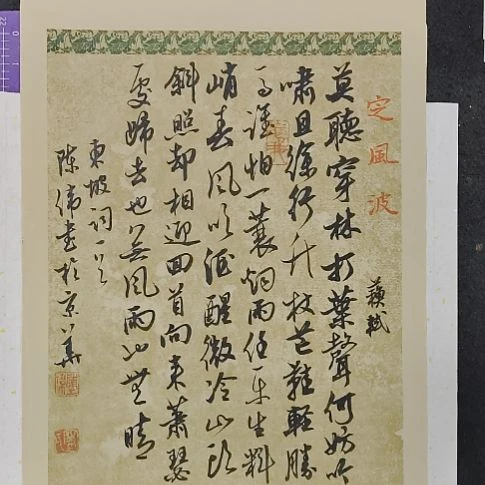 定風波
蘇軾
莫聽穿林打葉聲何妨吟
嘯且徐行竹杖芒鞋輕勝
馬誰怕一蓑烟雨任平生料
峭春風吹酒醒微冷山頭
斜照却相迎回首向来蕭瑟
處歸去也無風雨也無晴
東坡詞一首
陳偉書於京華